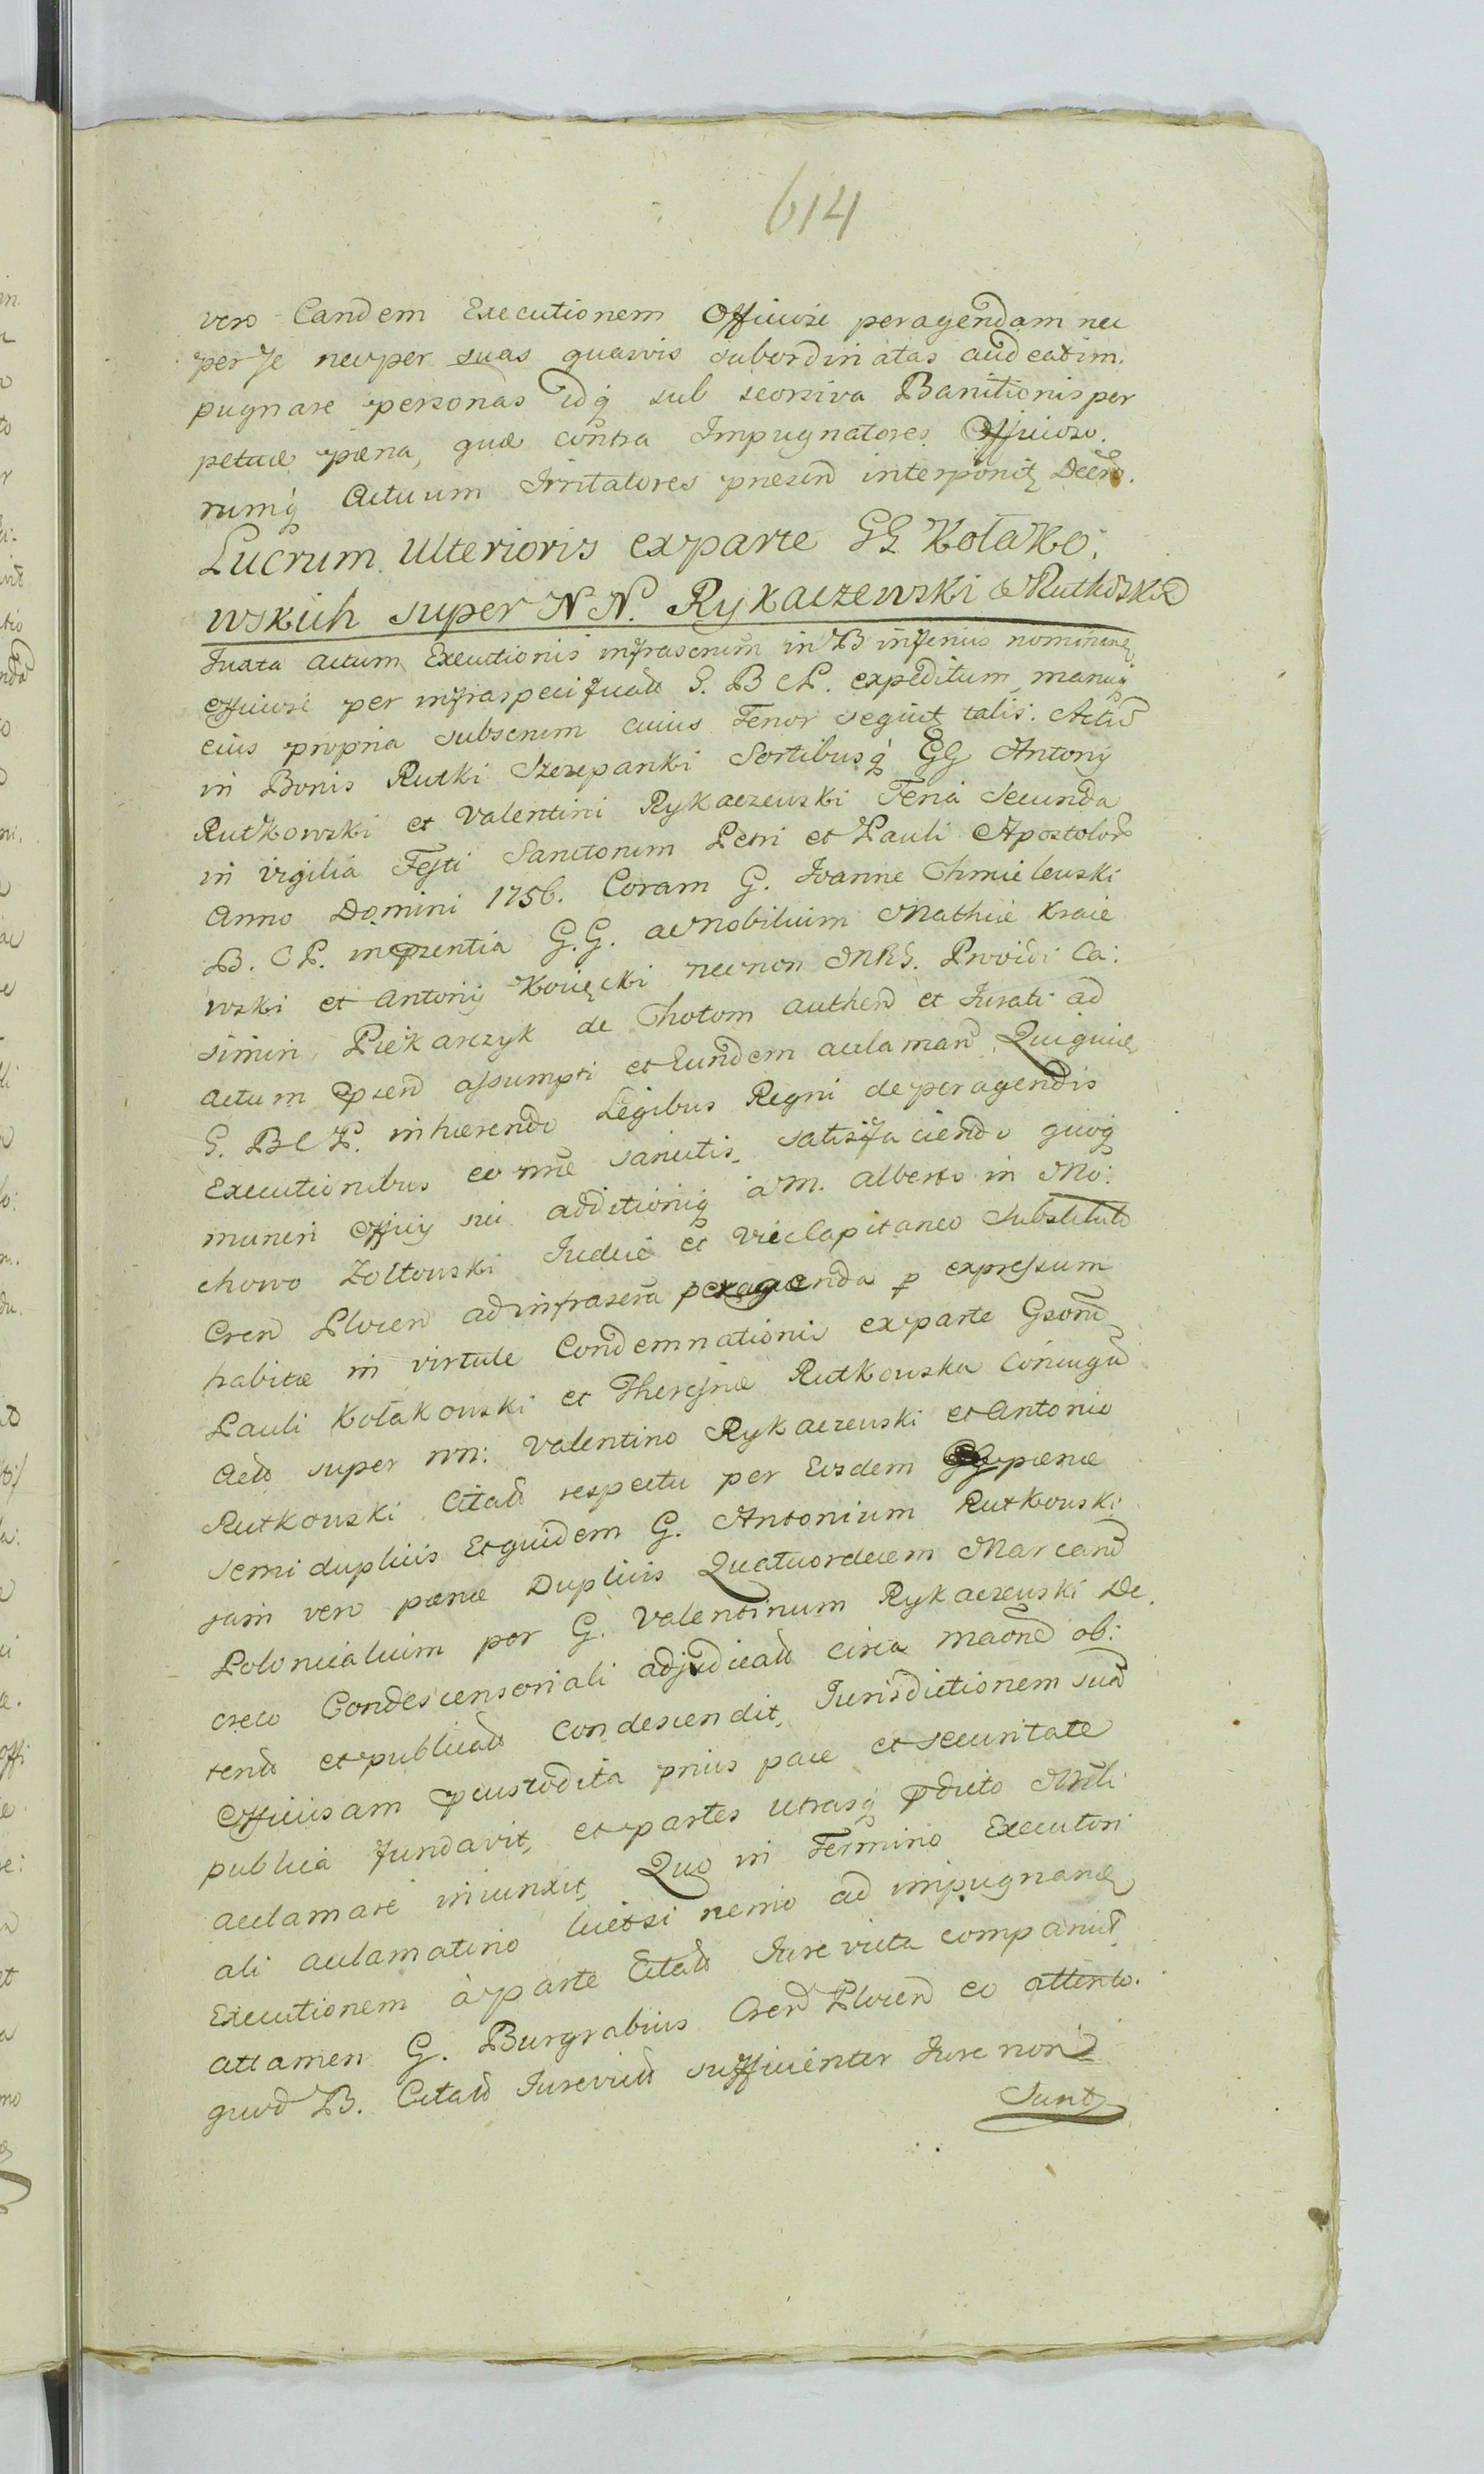 614
vero Eandem Executionem Officiose peragendam nec
per se nec per suas quasvis subordinatas audeat im
pugnare personas idq sub seorsiva Banitionis per
petuæ pœna, quæ contra Impugnatores Officioso
rumq Actuum Irritatores præsend interponit Decro.
Lucrum Ulterioris ex parte GG Kołako:
wskich super NN. Rykaczewski & Rutkowski
Iuxta Actum Executionis infrascrum in B inferius nominand
officiose per infraspecificatu G. B C P. expeditum, manuq
eius propria subscrum cuius Tenor sequit talis. Actu
in Bonis Rutki Szczepanki Sortibusq GG Antonij
Rutkowski et Valentini Rykaczewski Feria Secunda
in vigilia Festi Sanctorum Petri et Pauli Apostolor
Anno Domini 1756. Coram G. Ioanne Chmielewski
B. C P. in præntia G.G. ac Nobilium Mathiæ Kraie
wski et Antonij Kocięcki necnon MRG. Providi Ca:
simiri Piekarczyk de Chotom authen et Iurati ad
Actum præsen assumpti et Eundem aclaman. Qui quid
G. B C P. inhærendo Legibus Regni de peragendis
Executionibus eo nne sancitis, satisfaciendo quoq
muneri Officij sui additioniq a M. Alberto in Mo:
chowo Żołtowski Iudice et ViceCapitaneo Substituto
Cren Plocen ad infrascra peragenda p expressum
habitæ in virtute Condemnationis ex parte Gsorum
Pauli Kołakowski et Theresiæ Rutkowska Coniugu
Acto super nn: Valentino Rykaczewski et Antonio
Rutkowski Citatu respectu per Eosdem GG pœnæ
semiduplicis Et quidem G. Antonium Rutkowski
sam vero pœnæ Duplicis Quatuordecem Marcarum
Polonicalium per G. Valentinum Rykaczewski De
creto Condescensoriali adjudicatu circa maone ob:
tentu et publicatu Condescendit, Iurisdictionem sua
Officiosam præcustodita prius pace et securitate
publica fundavit, et partes utrasq pdicto Mnli
acclamare iniunxit, Quo in Termino Executori
ali acclamatirio licetsi nemo ad impugnanda
Executionem a parte Citatu Iurevicta comparuit
attamen G. Burgrabius Cren Plocen eo attento.
quod B. Citatu Iurevictu sufficienter Iure non
Sunt